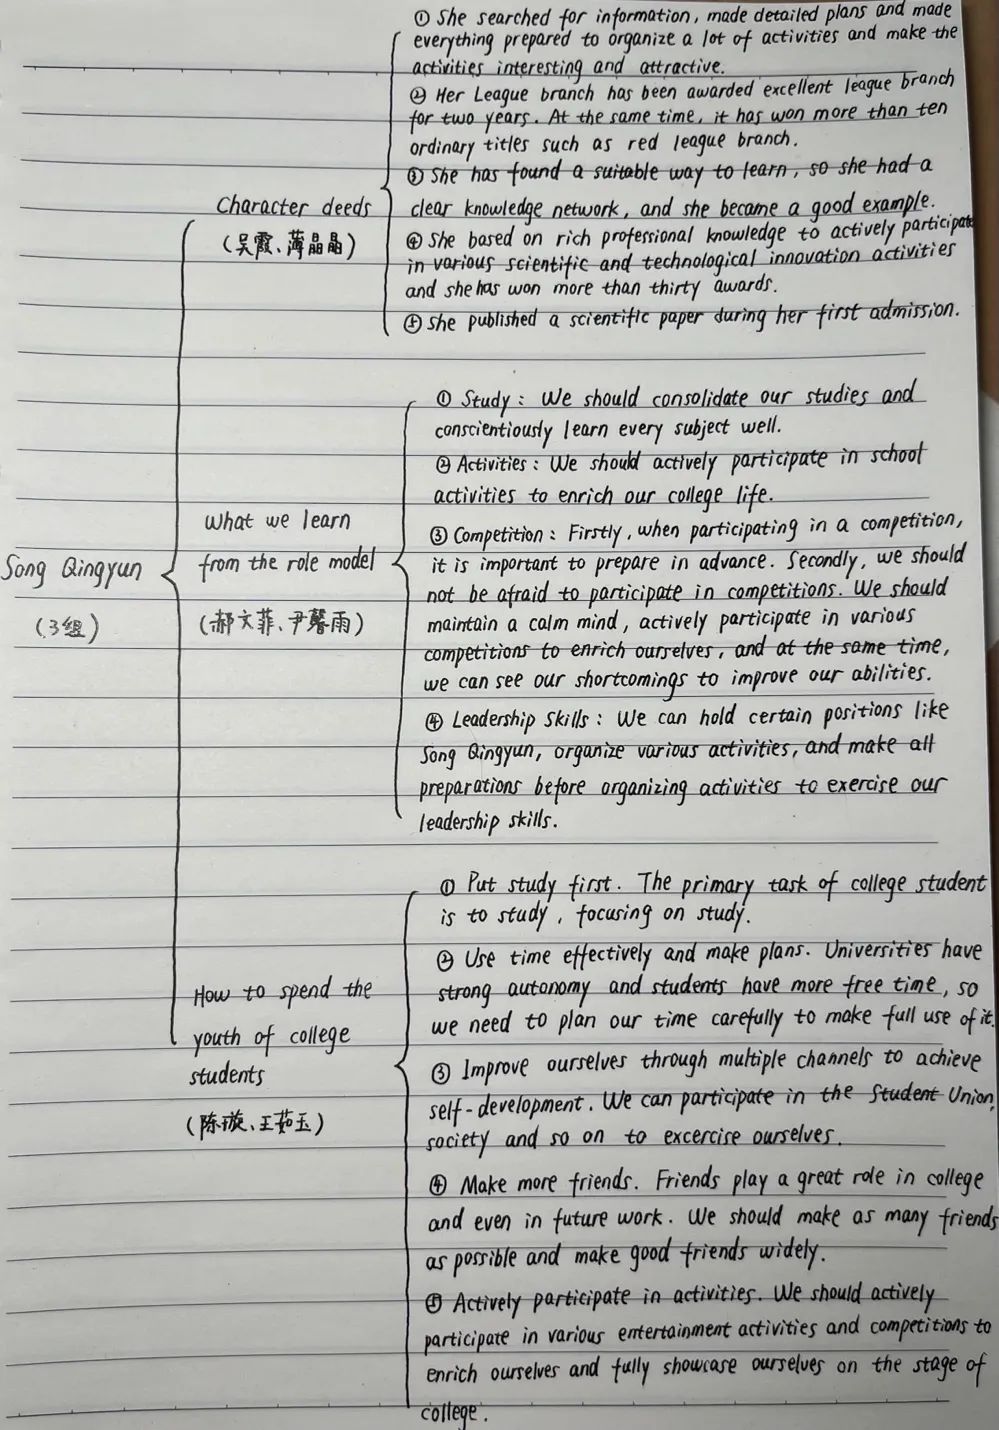 ① She searched for information, made detailed plans and made
everything prepared to organize a lot of activities and make the
activities interesting and attractive.
② Her League branch has been awarded excellent league branch
for two years. At the same time, it has won more than ten
ordinary titles such as red league branch.
③ She has found a suitable way to learn, so she had a
clear knowledge network, and she became a good example.
④ She based on rich professional knowledge to actively participate
in various scientific and technological innovation activities
and she has won more than thirty awards.
⑤ She published a scientific paper during her first admission.
Character deeds
(吴霞、薄晶晶)
① Study: We should consolidate our studies and
conscientiously learn every subject well.
② Activities: We should actively participate in school
activities to enrich our college life.
③ Competition: Firstly, when participating in a competition,
it is important to prepare in advance. Secondly, we should
not be afraid to participate in competitions. We should
maintain a calm mind, actively participate in various
competitions to enrich ourselves, and at the same time,
we can see our shortcomings to improve our abilities.
④ Leadership Skills: We can hold certain positions like
Song Qingyun, organize various activities, and make all
preparations before organizing activities to exercise our
leadership skills.
What we learn
from the role model
(郝文菲、尹馨雨)
Song Qingyun
(3组)
① Put study first. The primary task of college student
is to study, focusing on study.
② Use time effectively and make plans. Universities have
strong autonomy and students have more free time, so
we need to plan our time carefully to make full use of it.
③ Improve ourselves through multiple channels to achieve
self-development. We can participate in the Student Union,
society and so on to excercise ourselves.
④ Make more friends. Friends play a great role in college
and even in future work. We should make as many friends
as possible and make good friends widely.
⑤ Actively participate in activities. We should actively
participate in various entertainment activities and competitions to
enrich ourselves and fully showcase ourselves on the stage of
college.
How to spend the
youth of college
students
(陈璇、王茹玉)